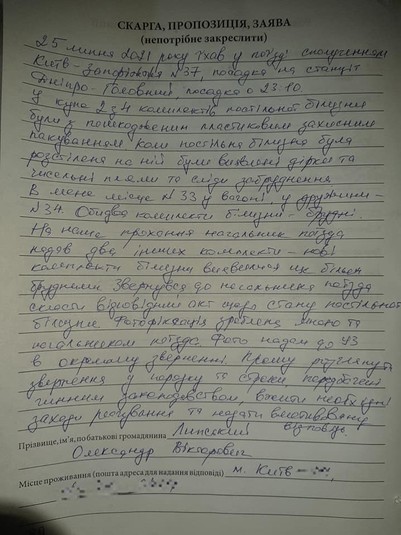 СКАРГА, ПРОПОЗИЦІЯ, ЗАЯВА
(непотрібне закреслити)
25 липня 2021 року їхав у поїзді сполученням
Київ-Запоріжжя №37, посадка на станції
Дніпро-Головний, посадка о 23:10
У купе 2 з 4 комплектів постільної білизни
були з пошкодженим пластиковим захисним
пакуванням. Коли постільна білизна була
розстелена на ній були виявлені дірки та
чисельні плями та сліди забруднення
В мене місце №33 у вагоні, у дружини -
№34. Обидва комплекти білизни - брудні.
На наше прохання начальник поїзда
надав два інших комплекти - нові
комплекти білизни виявилися ще більш
брудними. Звернувся до начальника поїзда
скласти відповідний акт щодо стану постільної
білизни. Фотофіксація зроблена мною та
начальником поїзда. Фото надам до УЗ
в окремому зверненні. Прошу розглянути
звернення у порядку та строки, передбачені
чинним законодавством, вжити необхідні
заходи реагування та надати
відповідь.
Прізвище, ім'я, по батькові громадянина Липський
Олександр Вікторович
Місце проживання (поштова адреса для надання відповіді) м. Київ